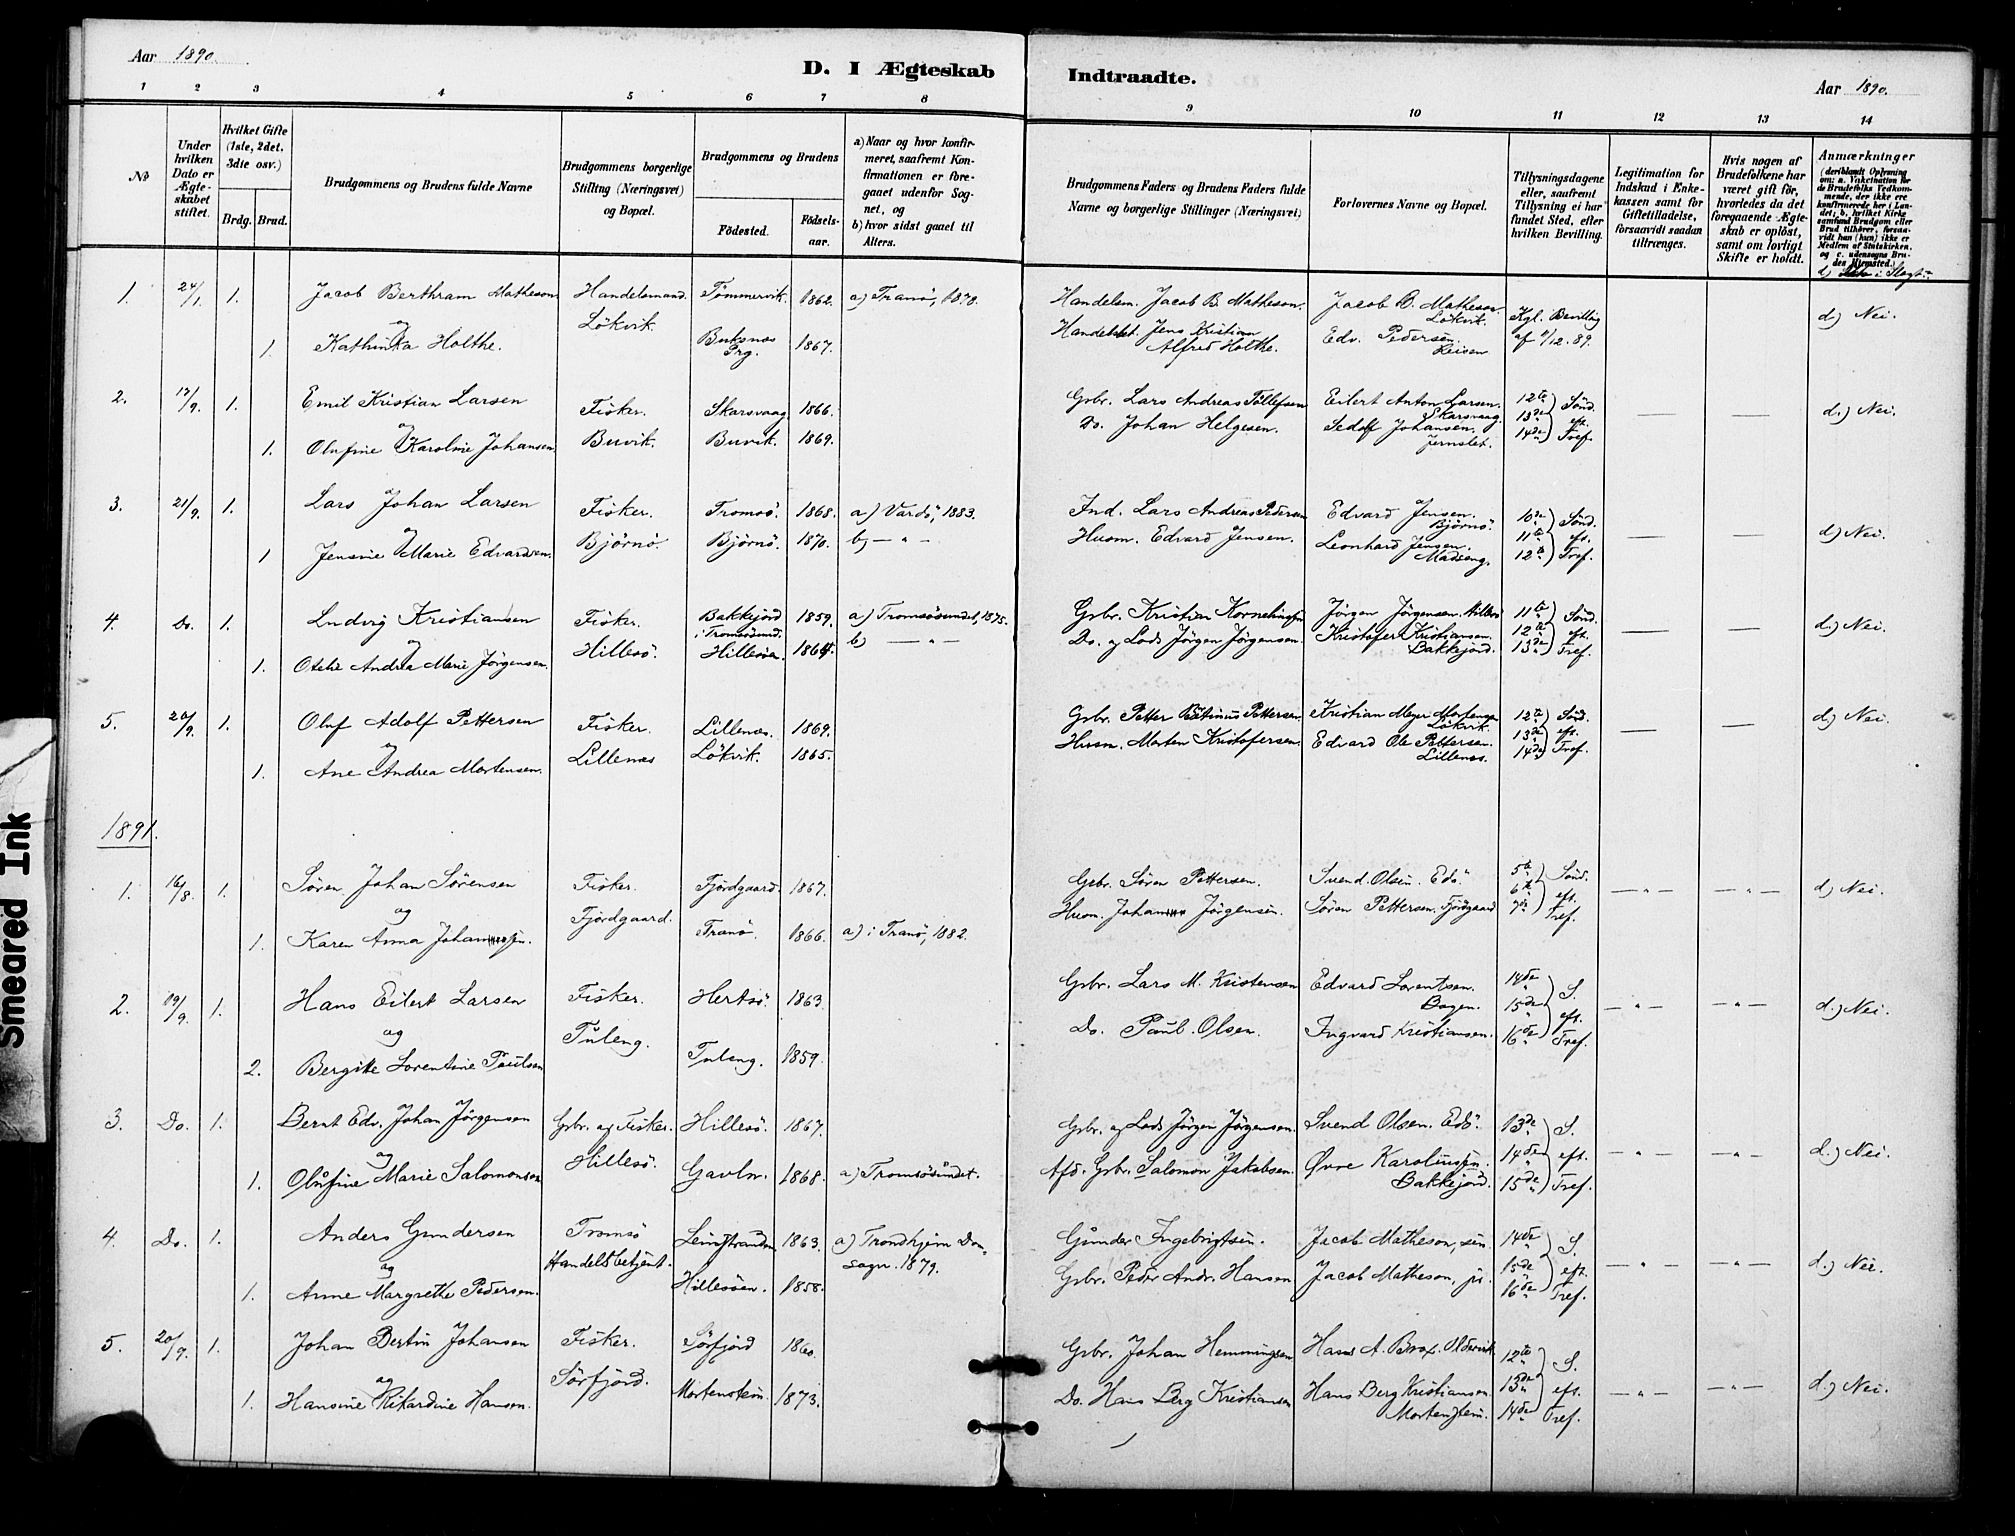 Aar 1890.
D. I Ægteskab
Indtraadte.
Aar 1890.
1 2 3 4 5 6 7 8 9 10 11 12 13 14
№
Under hvilken Dato er Ægteskabet stiftet.
Hvilket Gifte (1ste, 2det, 3die osv.)
Brdg. Brud.
Brudgommens og Brudens fulde Navne
Brudgommens borgerlige Stilling (Næringsvei) og Bopæl.
Brudgommens og Brudens
Födested.
Födsels-aar.
a) Naar og hvor konfirmeret, saafremt Konfirmationen er foregaaet udenfor Sognet, og
b) hvor sidst gaaet til Alters.
Brudgommens Faders og Brudens Faders fulde Navne og borgerlige Stillinger (Næringsvei)
Forlovernes Navne og Bopæl.
Tillysningsdagene eller, saafremt Tillysning ei har fundet Sted, efter hvilken Bevilling.
Legitimation for Indskud i Enkekassen samt for Giftetilladelse, forsaavidt saadan tiltrænges.
Hvis nogen af Brudefolkene har været gift för, hvorledes da det foregaaende Ægteskab er oplöst, samt om lovligt Skifte er holdt.
Anmærkninger (deriblandt Oplysning om: a. Vakcination for de Brudefolks Vedkommende, der ikke ere konfirmerede her i Landet; b. hvilket Kirkesamfund Brudgom eller Brud tilhörer, forsaavidt han (hun) ikke er Medlem af Statskirken, og c. udensogns Brudes Hjemsted.)
1. 24/1. 1. Jacob Berthram Matheson Handelsmand. Tömmervik. 1862. a) Tranö, 1878. Handelsm. Jacob B. Matheson. Jacob B. Matheson. Lökvik. Kgl. Bevilling d.) Nei.
og Lökvik.
1. Kathinka Holthe. Buksnæs Prg. 1867. Handelsbet. Jens Kristian Alfred Holthe. Edv. Pedersen. Leisen af 11/12. 89.
2. 17/9. 1. Emil Kristian Larsen Fisker. Skarsvaag 1866. Gbr. Lars Andreas Tollefsen Eilert Anton Larsen. Skarsvaag. 12te 13de 14de Sönd. eft. Tref. — — d.) Nei.
og
1. Olufine Karoline Johansen Buvik. Buvik. 1869. Do. Johan Helgesen. Sedolf Johansen. Jernslet.
3. 21/9. 1. Lars Johan Larsen Fisker. Tromsö. 1868. a) Vardö, 1883. Ind. Lars Andreas Pedersen Edvard Jensen. Bjørnö. 10de 11te 12te Sönd. eft. Tref. — — d.) Nei.
og
1 Jensine Marie Edvardsen. Bjørnö. Bjørnö. 1870. b) — " — Husm. Edvard Jensen. Leonhard Jensen. Madseng.
4. Do. 1. Ludvig Kristiansen Fisker. Bakkejord i Tromsösund. 1859. a) Tromsösundet, 1875. Gbr. Kristian Korneliussen Jörgen Jörgensen. Hillesö 11te 12te 13de Sönd. eft. Tref. — — d.) Nei.
og
1. Otelie Andrea Marie Jörgensen. Hillesö. Hillesöen. 1864. b) — " — Do. og Lods Jörgen Jörgensen. Kristofer Kristiansen. Bakkejord.
5. 26/9. 1. Oluf Adolf Pettersen Fisker. Lillenæs. 1869. Gbr. Petter Petinus Pettersen. Kristian Meyer Mortensen Lökvik. 12te 13de 14de Sönd. eft. Tref. — — d.) Nei.
og
1. Ane Andrea Mortensen. Lillenæs Lökvik. 1865. Husm. Morten Kristofersen. Edvard Ole Pettersen. Lillenæs.
1891.
1. 16/8. 1. Sören Johan Sörensen Fisker. Fjordgaard. 1867. Gbr. Sören Pettersen. Svend Olsen. Edö. 5te 6te 7de Sönd. eft. Tref. — " — — " — d.) Nei.
og Fjordgaard.
1. Karen Anna Johansen. Tranö. 1866. a) i Tranö, 1882. Husm. Johan Jörgensen. Sören Pettersen. Fjordgaard
2. 19/9. 1. Hans Eilert Larsen Fisker. Hertsö. 1863. Gbr. Lars M. Kristensen Edvard Lorentsen. Bogen. 14de 15de 16de S. eft. Tref. — " — — " — d.) Nei.
og Tuleng.
2. Bergitte Lorentine Paulsen Tuleng. 1859. Do. Paul Olsen. Ingvard Kristiansen.
3. Do. 1. Bernt Edv. Johan Jörgensen Gbr. og Fisker. Hillesö. 1867. Gbr. og Lods Jörgen Jörgensen. Svend Olsen. Edö. 13de 14de 15de S. eft. Tref. — " — — " — d.) Nei.
og Hillesö.
1. Olufine Marie Salomonsen Gavln. 1868. a) Tromsösundet. Afd. Gbr. Salomon Jakobsen. Øvre Karoliussen. Bakkejord.
4. Do. 1. Anders Gundersen Tromsö Leinstranden 1863. a) Trondhjem Domsogn. 1879. Gunder Ingebrigtsen. Jacob Matheson, sen. 14de 15de 16de S. eft. Tref. — " — — " — d.) Nei.
og Handelsbetjent.
1. Anne Margrethe Pedersen. Hillesöen. 1858. Gbr. Peder Andr. Hansen Jacob Matheson, jr.
5. 20/9. 1. Johan Bertin Johansen Fisker. Sörfjord 1860. Gbr. Johan Hemmingsen Hans A. Brox. Oldervik 12te 13de 14de S. eft. Tref. — " — — " — d.) Nei.
og Sörfjord.
1. Hansine Rikardine Hansen. Mortenstein. 1873. Do. Hans Berg Kristiansen Hans Berg Kristiansen. Mortenstein.
Smeared Ink